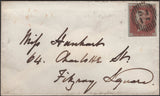 Miss Hanhart
64. Charlotte St
Fitzroy Square